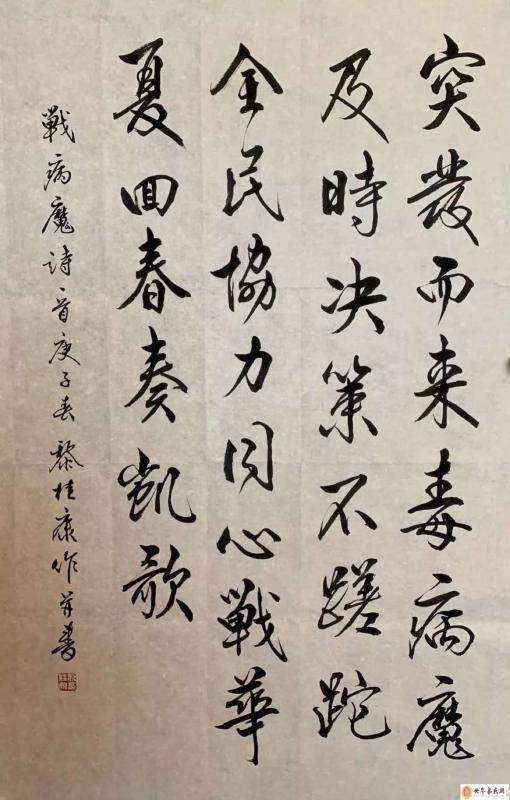 突發而来毒病魔
及時决策不蹉跎
全民協力同心戰華
夏回春奏凱歌
戰病魔詩一首庚子春黎桂康作并書